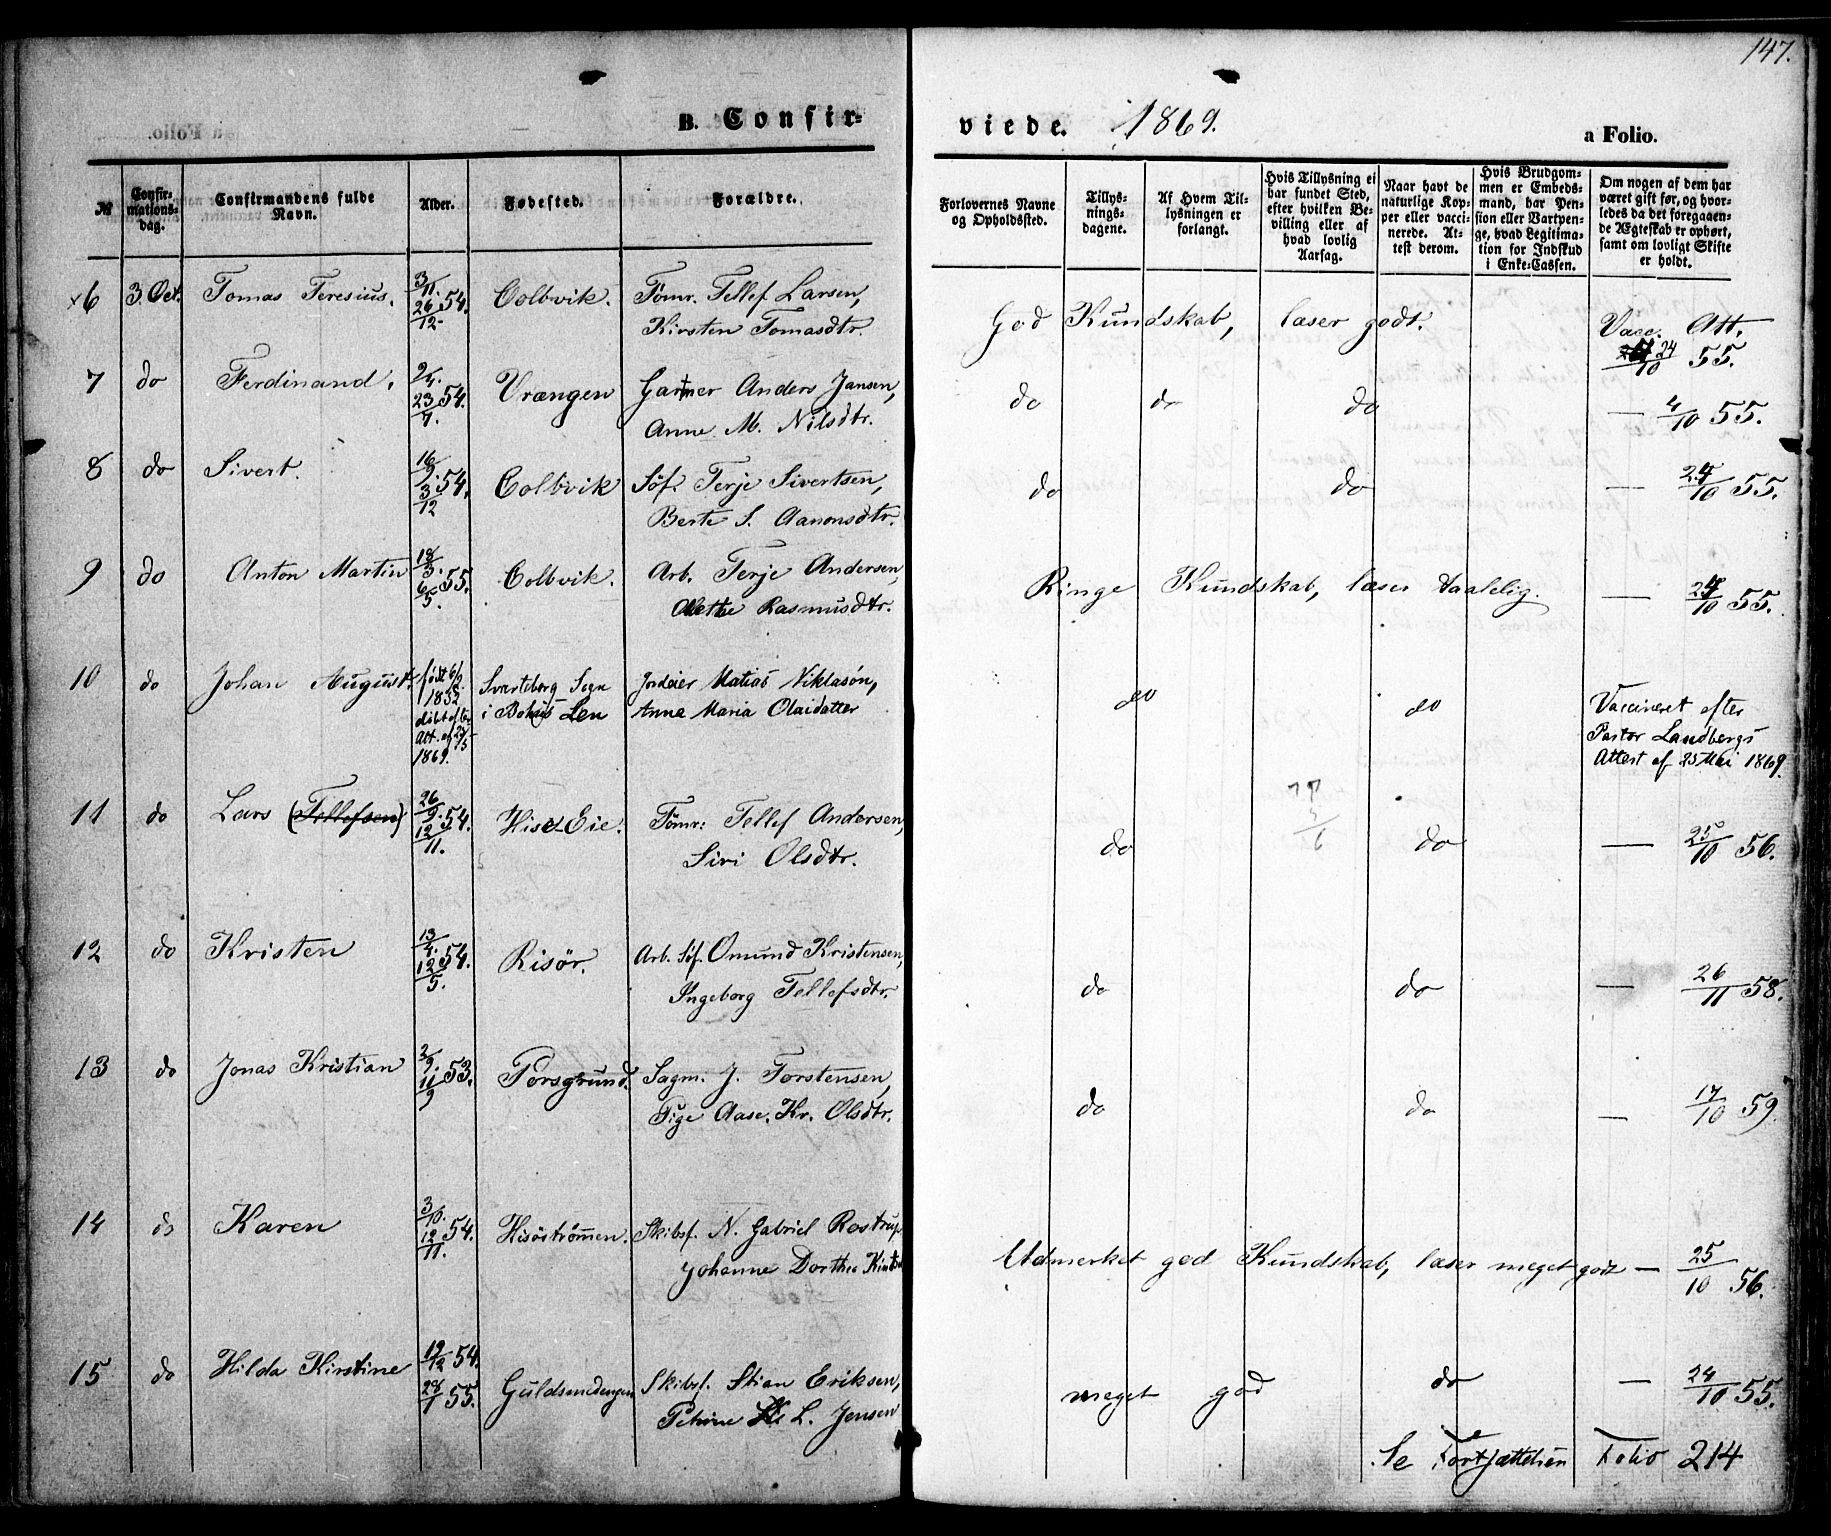 147.
B. Confir-
viede. 1869.
a Folio.
№
Confir-
mations-
dag.
Confirmandens fulde
Navn.
Alder.
Fødested.
Forældre.
Forlovernes Navne
og Opholdssted.
Tillys-
nings-
dagene.
Af Hvem Til-
lysningen er
forlangt.
Hvis Tillysning ei
har fundet Sted,
efter hvilken Be-
villing eller af
hvad lovlig
Aarsag.
Naar havt de
naturlige Kop-
per eller vacci-
nerede. At-
test derom.
Hvis Brudgom-
men er Embeds-
mand, har Pen-
sion eller Vartpen-
ge, hvad Legitima-
tion for Indskud
i Enke-Cassen.
Om nogen af dem har
været gift før, og hvor-
ledes da det foregaaen-
de Ægteskab er ophørt,
samt om lovligt Skifte
er holdt.
x6 3 Oct. Tomas Teresius. 3/11. 26/12 54. Colbvik. Tömr. Tellef Larsen,
Kirsten Tomasdtr.
God Kundskab, læser godt. Vacc. Att.
24/10 55.
7 do Ferdinand. 9/4. 23/7. 54. Vrængen Gartner Anders Jansen,
Anne M. Nilsdtr.
do do do — 4/10 55.
8 do Sivert. 16/9. 3/12 54. Colbvik Söf. Terje Sivertsen,
Berte S. Aanonsdtr.
do do — 24/10 55.
9 do Anton Martin 18/3. 6/5. 55. Colbvik. Arb. Terje Andersen,
Rasmusdtr.
Ringe Kundskab, læser taalelig. — 24/10 55.
10 do Johan August. født 6/9. 1852 döbt efter Att. af 25/5 1869. Svarteborg Sogn
i Bohus Len
Jordeier Matias Niklasön,
Anne Maria Olaidatter
do do Vaccineret efter
Pastor Landbergs
Attest af 25 Mai 1869.
11 do Lars (Tellefsen) 26/9. 12/11. 54. Hisø Eie. Tömr. Tellef Andersen,
Siri Olsdtr.
do do — 25/10 56.
12 do Kristen 13/4. 12/5. 54. Risör. Arb. Söf. Omund Kristensen,
Ingeborg Tellefsdtr.
do do — 26/11 58.
13 do Jonas Kristian 3/9. 11/9 53. Porsgrund. Sagm. J. Torstensen,
Pige Aase. Kr. Olsdtr.
do do — 17/10 59.
14 do Karen 3/10. 12/11. 54. Hisöströmmen. Skibsf. N. Gabriel Rostrup,
Johanne Dorthea
Udmerket god Kundskab, læser meget godt — 25/10 56.
15 do Hilda Kirstine 19/12 54. 28/1 55. Guldsmedengen Skibsf. Stian Eriksen,
Petrine L. Jensen
meget god do — 24/10 55.
Se Fortsættelsen Folio 214